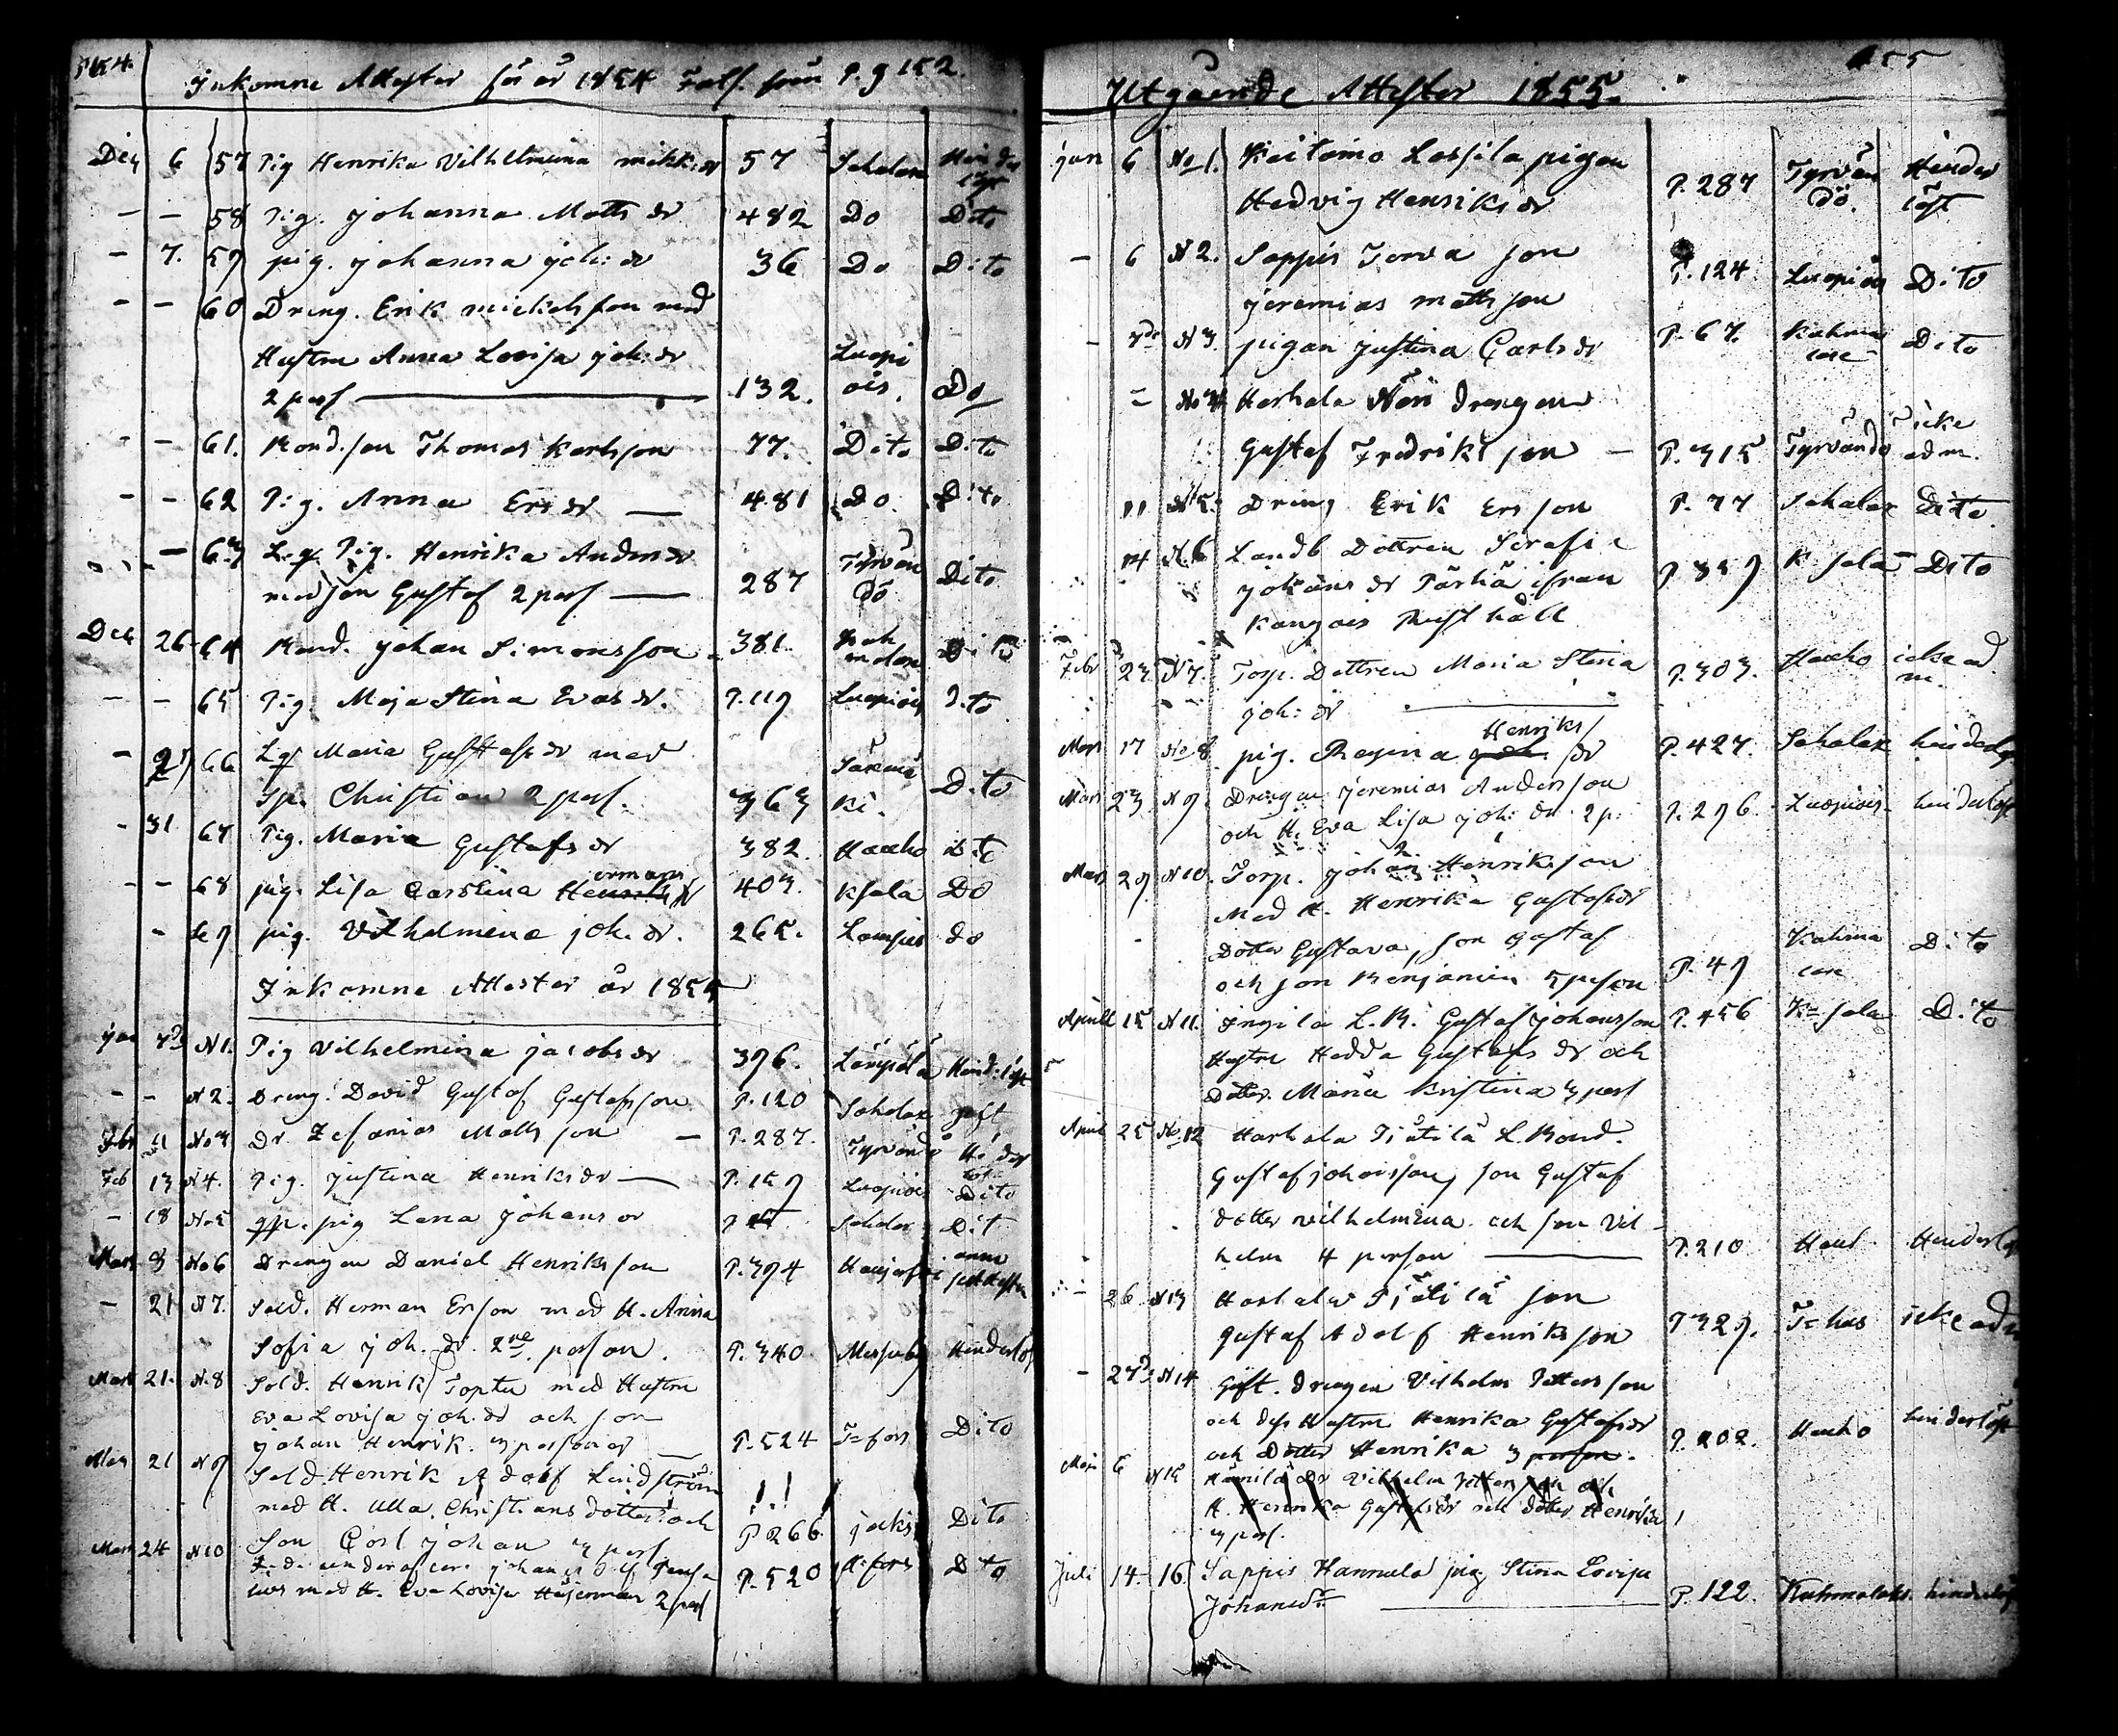 Inkomne Attester för år 1854 Forts. från P. g 152.
Dec 6 57 Pig Henrika Vilhelmina mikk: dr 57 Sahalax Hinder löst
— — 58 Pig. Johanna Matts dr 482 Do Dito
— 7. 59 pig. Johanna Joh: dr 36 Do Dito
— — 60 Dreng. Erik mickelsson med
Hustru Anna Lovisa joh: dr Luopi
2 pers 132. ois. Do
— — 61. Bond. son Thomas Karlsson 77. Dito Dito
— — 62 Pig. Anna Ers dr — 481 Do. Dito
— 63 Lq. Pig. Henrika Anders dr Tyrvän
med son Gustaf 2 pers — 287 dö Dito
Dec 26 64 Bond. Johan Simonsson 381. Dito
— — 65 Pig. Maja Stina Evas dr. P. 119 Luopiois Dito
— 29 66 Lq Maria Gustafs dr med Säxmä
Sp. Christian 2 pers. 363 ki. Dito
— 31 67 Pig. Maria Gustafs dr 382. Hauho Dito
— — 68 pig. Lisa Carolina Hermans dr 403. Ksala Do
— 69 pig. Vilhelmina joh. dr. 265. Lampis do
Inkomne Attester år 1855
Jan 7de N 1. Pig Vilhelmina Jacobs dr 396. Lempälä Hind: löst
— — N 2. Dreng. David Gustaf Gustafsson P. 120 Sahalax gift
Febr 11 No 3 Dr Zefanias Mattsson — P. 287. Tyrvändö Hinder löst
Feb 13 N 4. Pig. Justina Henriks dr — P. 159 Luopiois Dito
— 18 No 5 pig Lena Johans dr Sahalax Dit
Mars 8 No 6 Drengen Daniel Henriksson P. 394
— 21 N 7. Sold. Herman Ersson med H. Anna
Sofia Joh. dr. 2ne person. P. 340 Messuby Hinderlös
Mars 21. N. 8 Sold. Henrik Topten med Hustru
Eva Lovisa Joh. dr och son
Johan Henrik. 3 personer — P. 524 T=fors Dito
Mars 21 N 9 Sold Henrik Adolf Lindström
med H. Ulla Christians dotter och
Son Carl Johan 3 pers P 266. Dito
Mars 24 N 10 underoficeri Johan
med H. Eva Lovisa 2 pers P. 520 Dito
155
Utgående Attester 1855.
jan 6 No 1. Kaitamo Lassila pigan
Hedvig Henriks dr P. 287 Tyrvän dö. Hinder löst
— 6 N 2. Sappis Torva son
Jeremias mattsson P. 124 Luopiois Dito
— 7de N 3. pigan Justina Carls dr P. 67. Kuhma laxe Dito
— No 4 Harhala Näri drengen
Gustaf Fredriksson — P. 315 Tyrvändö icke adm.
11 N 5. Dreng Erik Ersson P. 77 Sahalax Dito.
14 N. 6 Landb Dottren Serafia
Johans dr Pärliä ifrån P 359 K sala Dito
Kangais Rusthåll
Febr 23 N 7. Torp. Dottren Maria Stina P. 303. Hauho icke ad m.
joh: dr
Mars 17 No 8 pig. Regina Henriks dr P. 427. Sahalax
Mars 23 N 9. Drengen Jeremias Andersson
och H. Eva Lisa joh: dr. 2 p. P. 296. Luopiois hinderlöst
Mars 29 N 10. Torp. Johan Henriksson
Med H. Henrika Gustafs dr
Dotter Gustava, son Gustaf Kuhma Dito
och son Benjamin 5 person P. 49 laxe
Aprill 15 N 11. L. B. Gustaf Johansson P. 456 K=sala Dito
Hustru Hedda Gustafs dr och
Dotter. Maria Kristina 3 pers
April 25 No. 12 Harhala Pjätilä L. Bond.
Gustaf Johansson, son Gustaf
dotter Vilhelmina och son Vil-
helm 4 person P. 210 Hauh Hinderlös
— 26 N 13 Harhala Pjätilä son
Gustaf Adolf Henriksson P 329. T=hus icke adm
— 27de N 14 Gift. drengen Vilhelm Pettersson
och dess Hustru Henrika Gustafs dr
och Dotter Henrika 3 person. P. 202. Hauho hinderlöst
Maj 6 N 15 Dr Vilhelm Pettersson och
H. Henrika Gustafs dr och dotter Henrika
3 pers.
Juli 14. 16. Sappis Hannula pig Stina Lovisa
Johansdr P. 122. Kuhmalaks. hinderlös